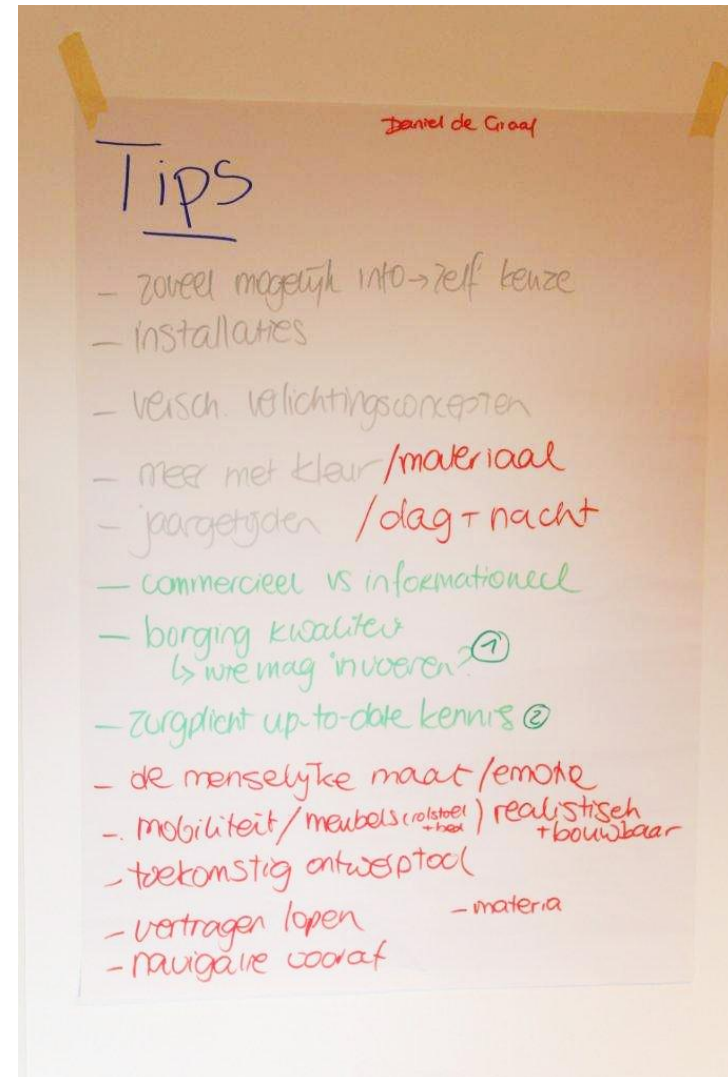 Daniel de Graaf
Tips
- zoveel mogelijk info → zelf keuze
- installaties
- versch. verlichtingsconcepten
- meer met kleur /materiaal
- jaargetijden /dag + nacht
- commercieel vs informationeel
- borging kwaliteit
↳ wie mag invoeren? ①
- zorgplicht up-to-date kennis ②
- de menselijke maat /emotie
- mobiliteit / meubels (rolstoel + bed) realistisch + bouwbaar
- toekomstig ontwerptool
- vertragen lopen - materia
- navigatie vooraf